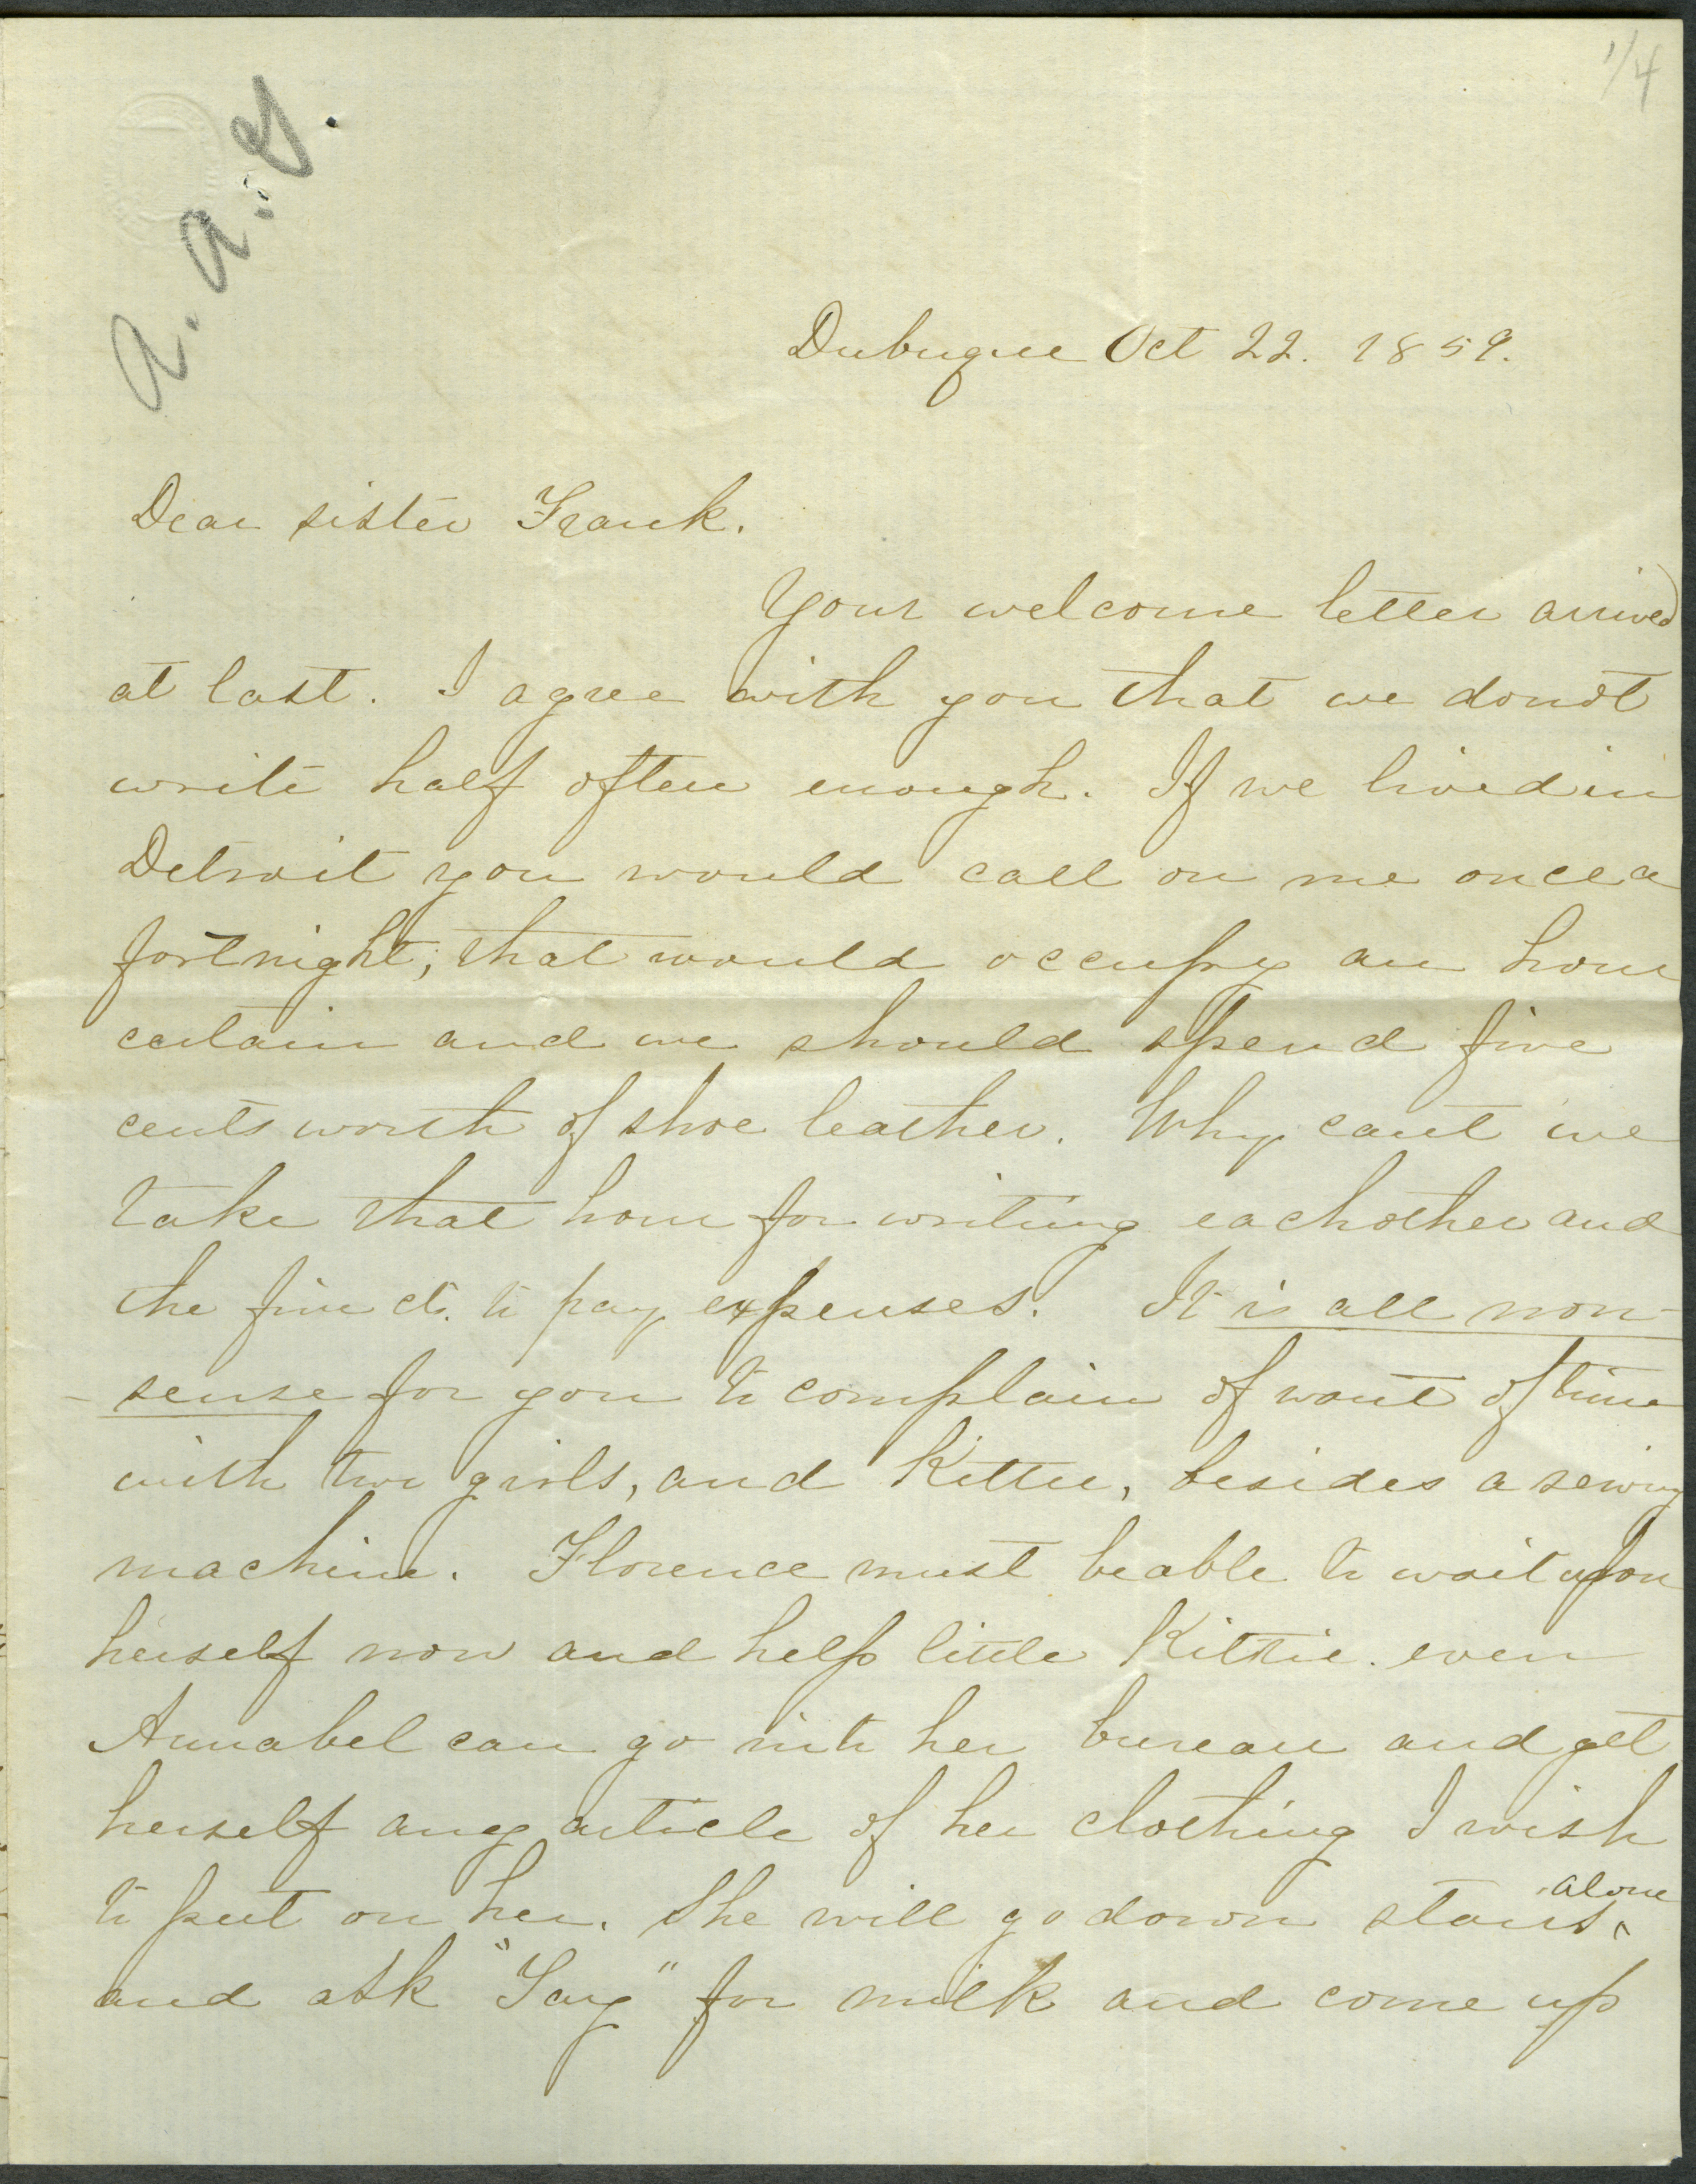 1/4
a. a. G.
Dubuque Oct 22. 1859.
Dear sister Frank.
Your welcome letter arrived
at last. I agree with you that we dont
write half often enough. If we lived in
Detroit you would call on me once a
fortnight; that would occupy an hour
certain and we should spend five
cents worth of shoe leather. Why cant we
take that hour for writing eachother and
the five cts. to pay expenses. It is all non-
-sense for you to complain of want of time
with two girls, and Kittie, besides a sewing
machine. Florence must be able to wait upon
herself now and help little Kittie. even
Annabel can go into her bureau and get
herself any article of her clothing I wish
to put on her. She will go down stairs alone
and ask "Say" for milk and come up